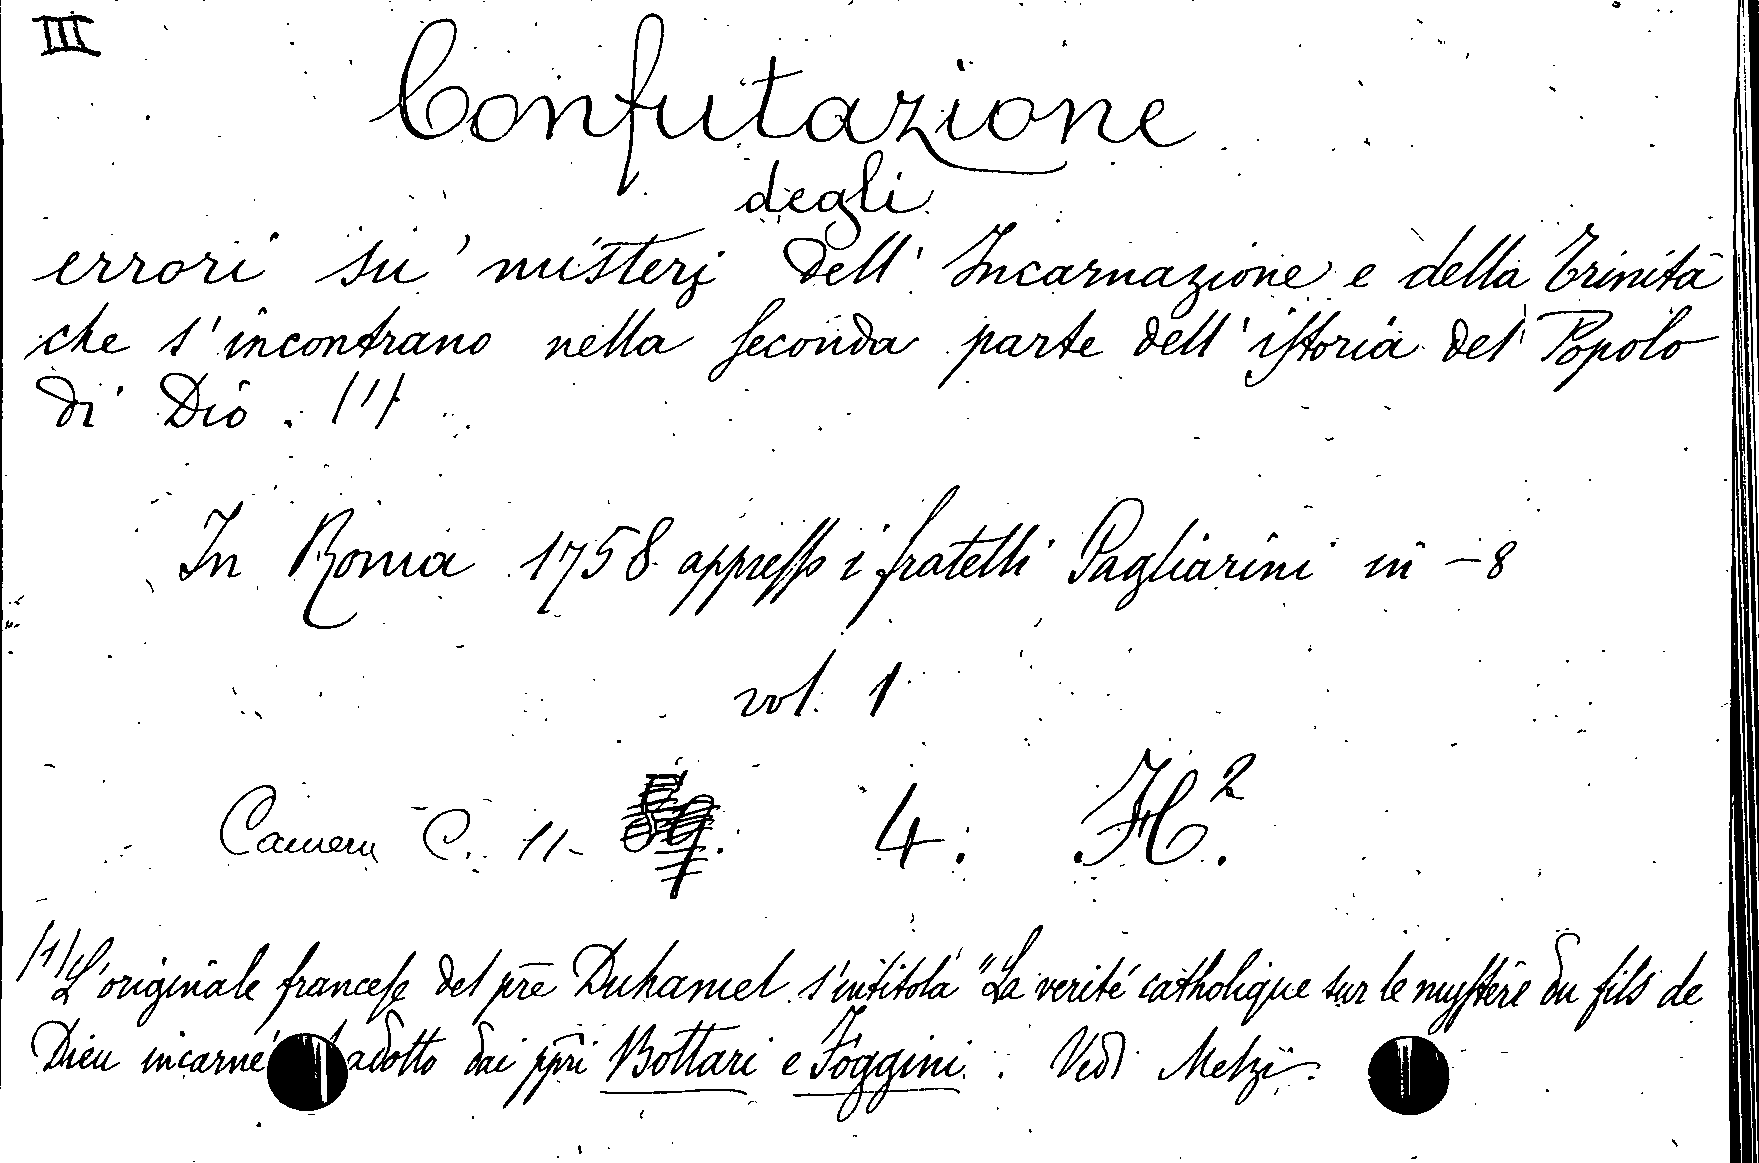 III
Confutazione
degli
errori su' misterj dell' Incarnazione e della Trinità
che s'incontrano nella seconda parte dell'istoria del Popolo
di Dio. (1)
In Roma 1758 appresso i fratelli Pagliarini in -8
vol. 1
Camera C. 11- 4. H².
(1) L'originale francese del pre Duhamel s'intitola "La verité catholique sur le mystère du fils de
Dieu incarné adotto dai ppri Bottari e Foggini. Vedi Melzi.